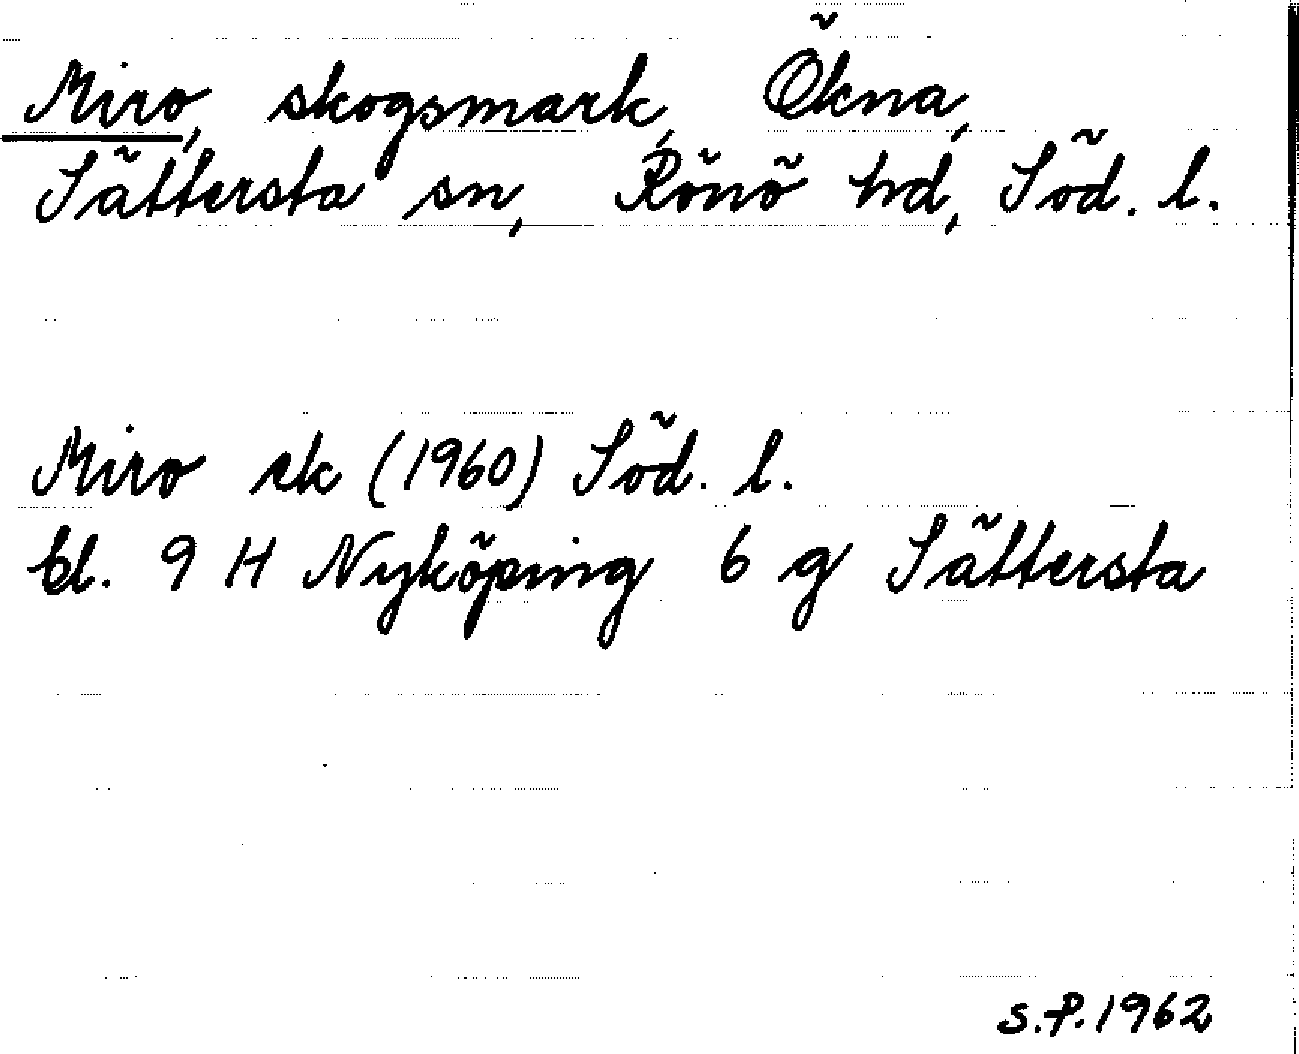 Miro, skogsmark, Ökna,
Sättersta sn, Rönö hd, Söd. l.
Miro sk (1960) Söd. l.
bl. 9 H Nyköping 6 g Sättersta
S.P. 1962